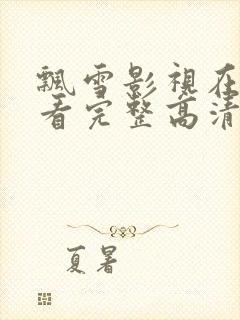 飄雪影視在
看完整高清
夏暑